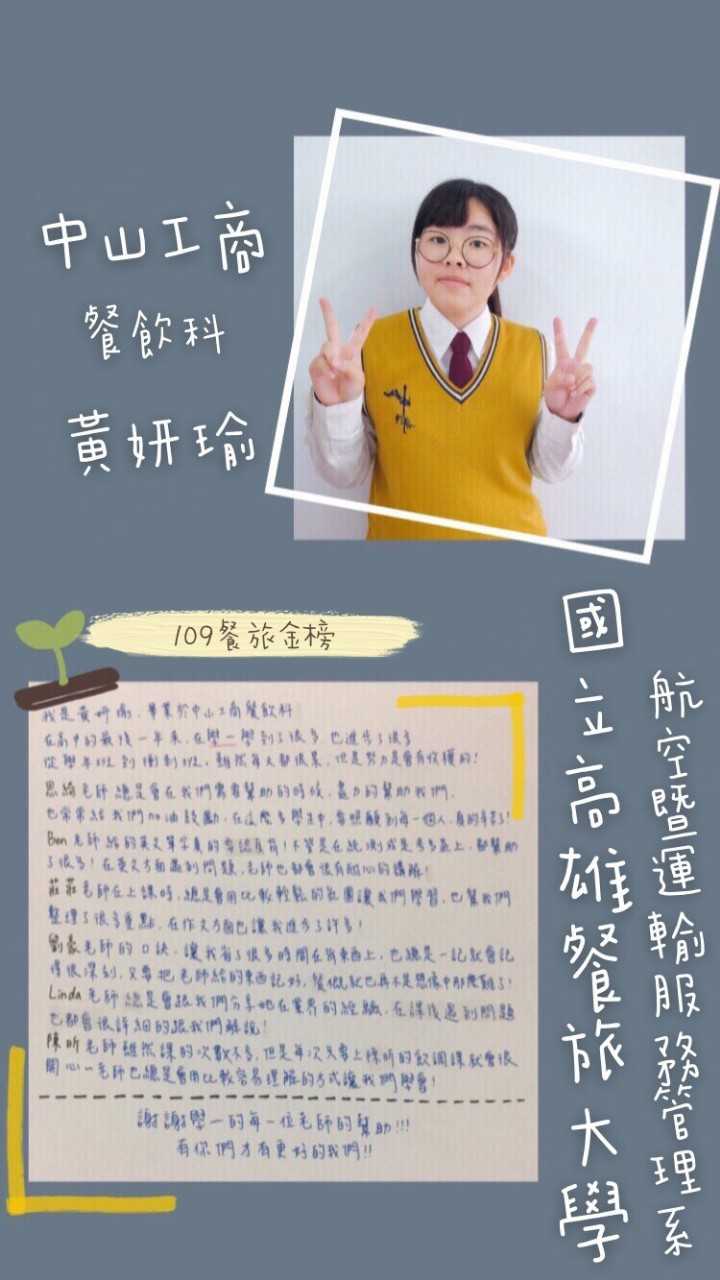 中山工商
餐飲科
黃妍瑜
109餐旅金榜
國立高雄餐旅大學
航空暨運輸服務管理系
我是黃妍瑜,畢業於中山工商餐飲科
在高中的最後一年來,在學一學到了很多,也進步了很多
從學年班到衝刺班,雖然每天都很累,但是努力是會有收穫的!
思綺老師總是會在我們需要幫助的時候,盡力的幫助我們,
也常常給我們加油鼓勵,在這麼多學生中,要照顧到每一個人,真的辛苦了!
Ben老師給的英文單字真的要認真背!不管是在統測或是多益上,都幫助
了很多!在英文方面遇到問題,老師也都會很有耐心的講解!
莊莊老師在上課時,總是會用比較輕鬆的氛圍讓我們學習,也幫我們
整理了很多重點,在作文方面也讓我進步了許多!
劉豪老師的口訣,讓我省了很多時間在背東西上,也總是一記就會記
得很深刻,只要把老師給的東西記好,餐概就也再不是想像中那麼難了!
Linda老師總是會跟我們分享她在業界的經驗,在課後遇到問題
也都會很詳細的跟我們解說!
陳昕老師雖然課的次數不多,但是每次只要上陳昕的飲調課就會很
開心~老師也總是會用比較容易理解的方式讓我們學會!
謝謝學一的每一位老師的幫助!!!
有你們才有更好的我們!!